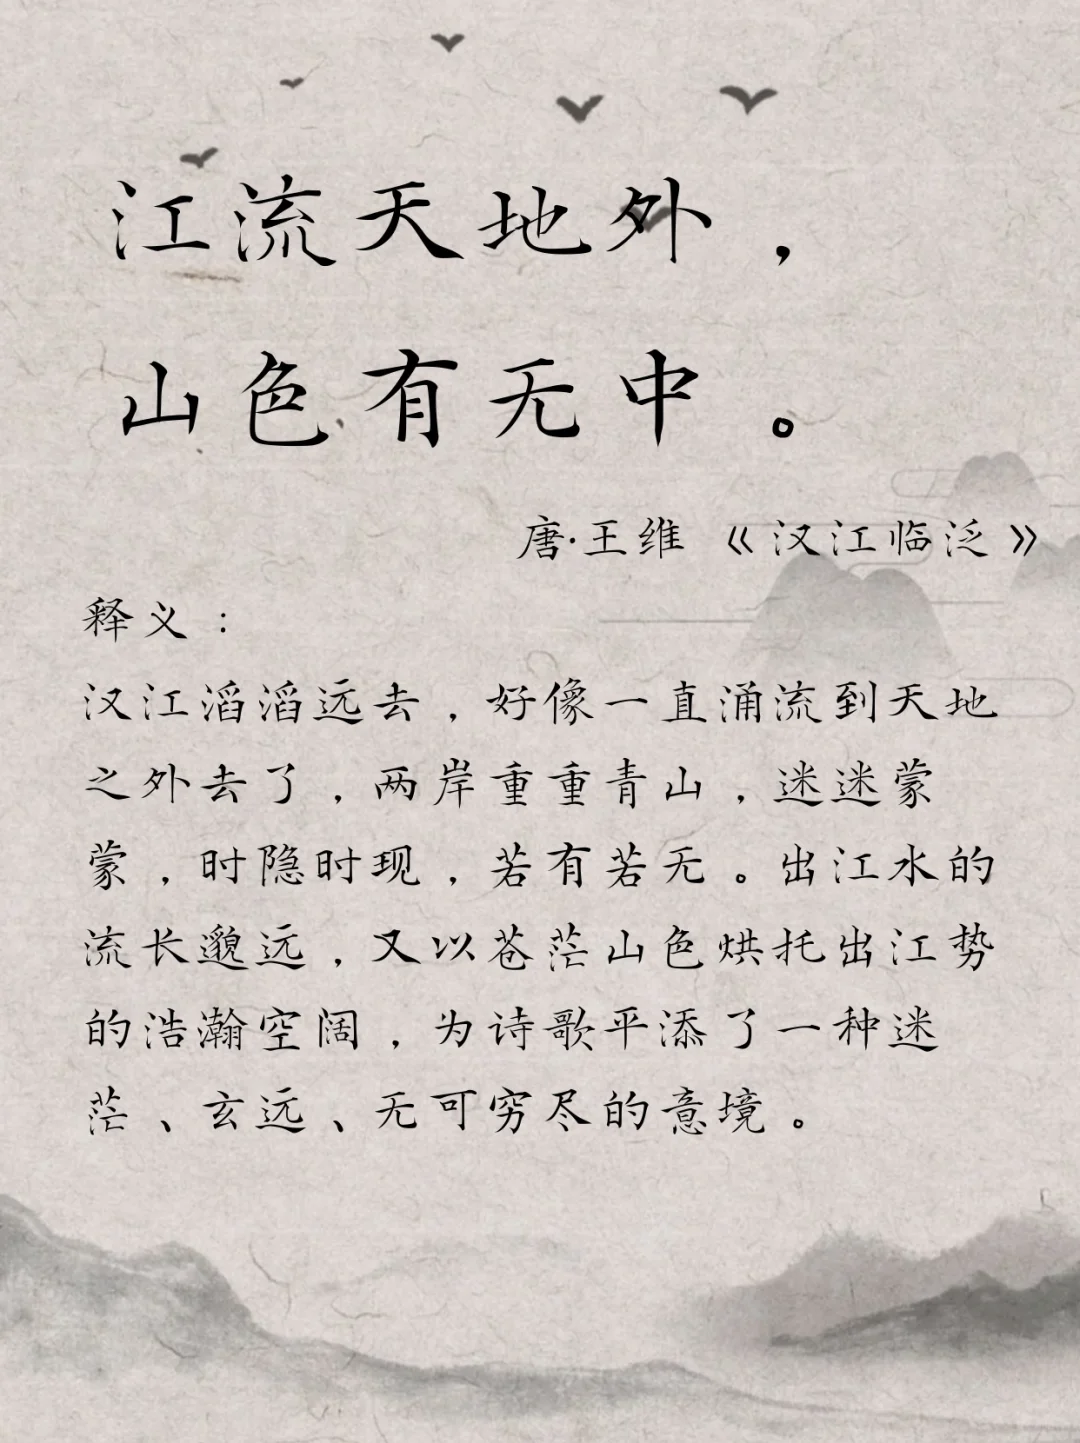 江流天地外，
山色有无中。
唐·王维 《汉江临泛》
释义：
汉江滔滔远去，好像一直涌流到天地
之外去了，两岸重重青山，迷迷蒙
蒙，时隐时现，若有若无。出江水的
流长邈远，又以苍茫山色烘托出江势
的浩瀚空阔，为诗歌平添了一种迷
茫、玄远、无可穷尽的意境。